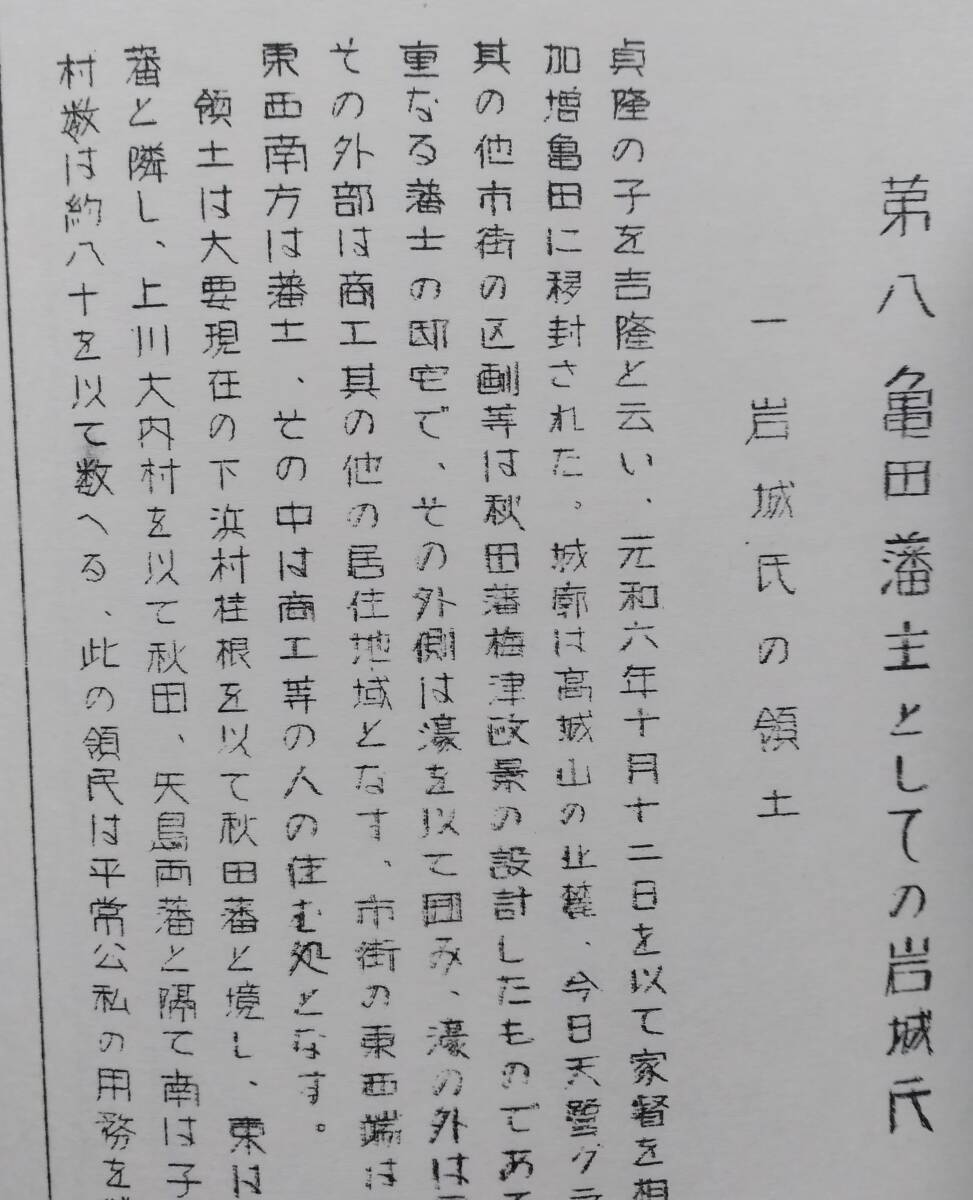 第八 亀田藩主としての岩城氏
一 岩城氏の領土
貞隆の子を吉隆と云い、元和六年十月十二日を以て家督を相
加増亀田に移封された。城廓は高城山の北麓、今日天鷺グラ
其の他市街の区劃等は秋田藩梅津政景の設計したものであ
重なる藩士の邸宅で、その外側は濠を以て囲み、濠の外は
その外部は商工其の他の居住地域となす、市街の東西端は
東西南方は藩士、その中は商工等の人の住む処となす。
領土は大要現在の下浜村桂根を以て秋田藩と境し、東は
藩と隣し、上川大内村を以て秋田、矢島両藩と隔て南は子
村数は約八十を以て数へる、此の領民は平常公私の用務を